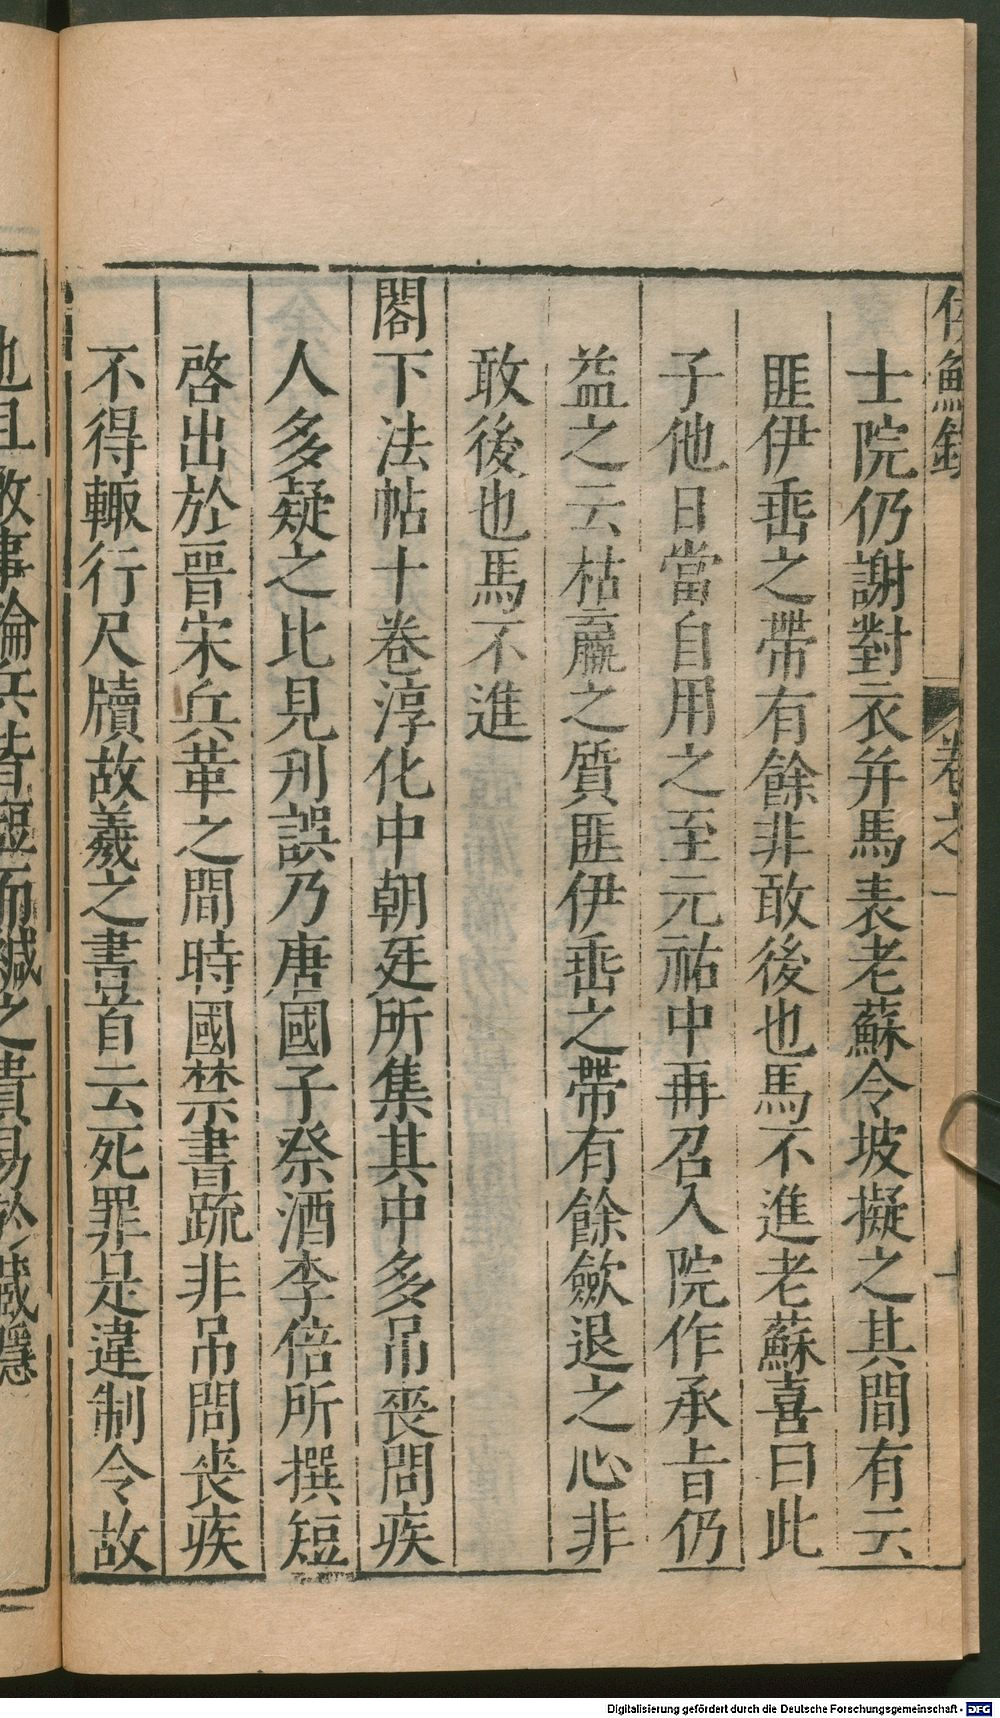 侯鯖錄 卷之一 十
士院仍謝對衣并馬表老蘇令坡擬之其間有云
匪伊垂之帶有餘非敢後也馬不進老蘇喜曰此
子他日當自用之至元祐中再召入院作承旨仍
益之云枯羸之質匪伊垂之帶有餘歛退之心非
敢後也馬不進
閣下法帖十卷淳化中朝廷所集其中多吊喪問疾
人多疑之比見刋誤乃唐國子祭酒李倍所撰短
啓出於晉宋兵革之間時國禁書疏非吊問喪疾
不得輙行尺牘故羲之書首云死罪是違制令故
也且敵事論兵皆短而緘之貴易於藏隱
Digitalisierung gefördert durch die Deutsche Forschungsgemeinschaft - DFG